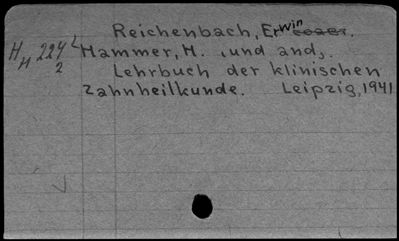 Reichenbach, Erwin
Hammer, H. , und and,.
Lehrbuch der klinischen
Zahnheilkunde. Leipzig, 1941
H H 224 L
2